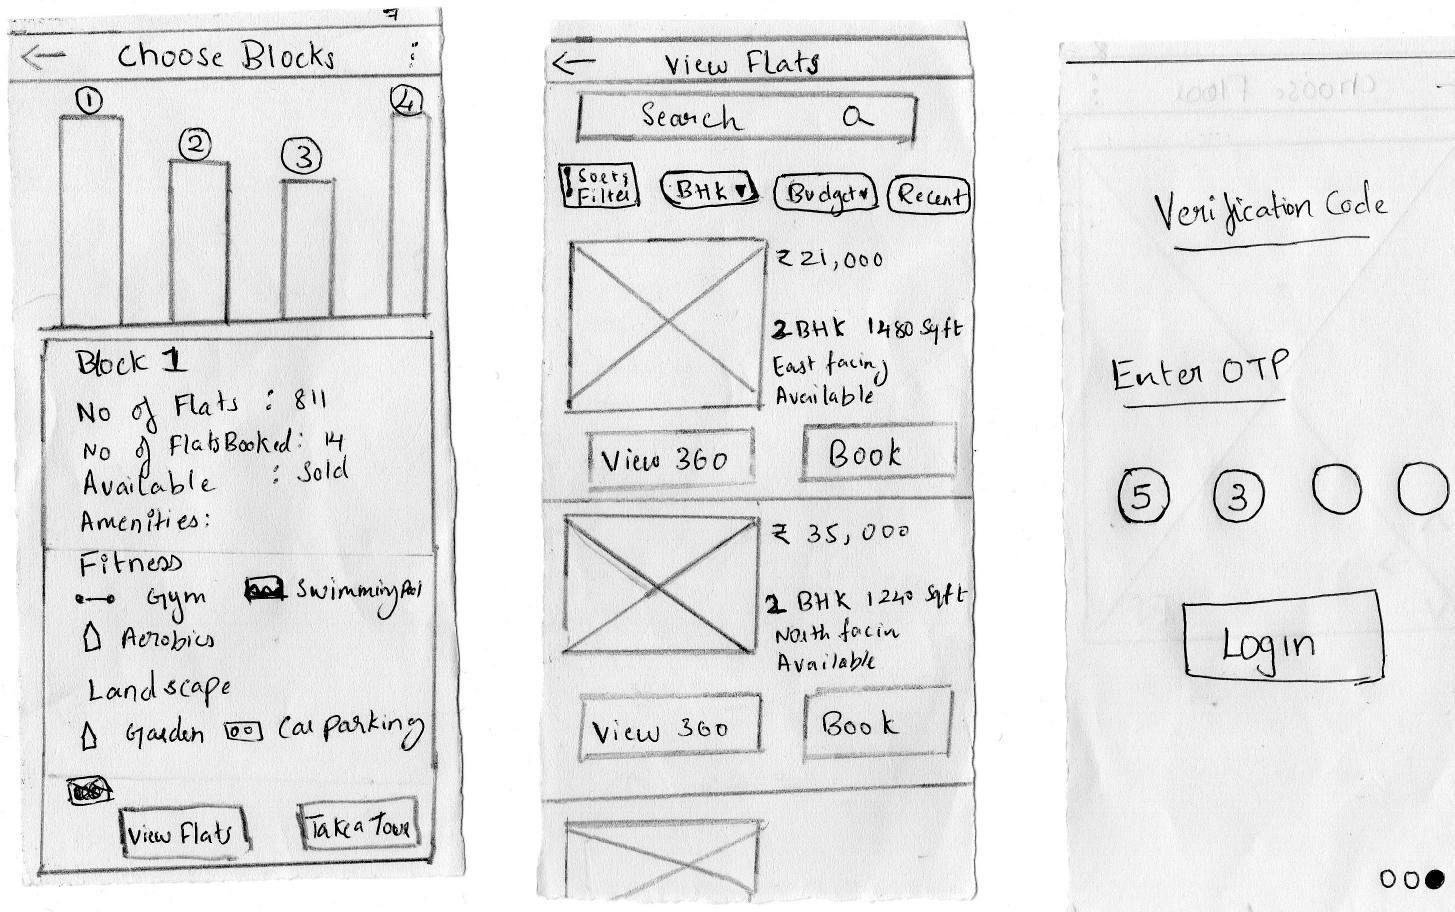 Choose Blocks
1
2
3
4
Block 1
No of Flats : 811
No of Flats Booked: 14
Available : Sold
Amenities:
Fitness
Gym Swimming Pool
Aerobics
Landscape
Garden Car parking
View Flats Take a Tour
View Flats
Search
Sort &
Filter
BHK ▾ Budget ▾ Recent
₹ 21,000
2 BHK 1480 Sqft
East facing
Available
View 360 Book
₹ 35,000
2 BHK 1240 Sqft
North facin
Available
View 360 Book
Choose Floor
Verification Code
Enter OTP
5 3
Login